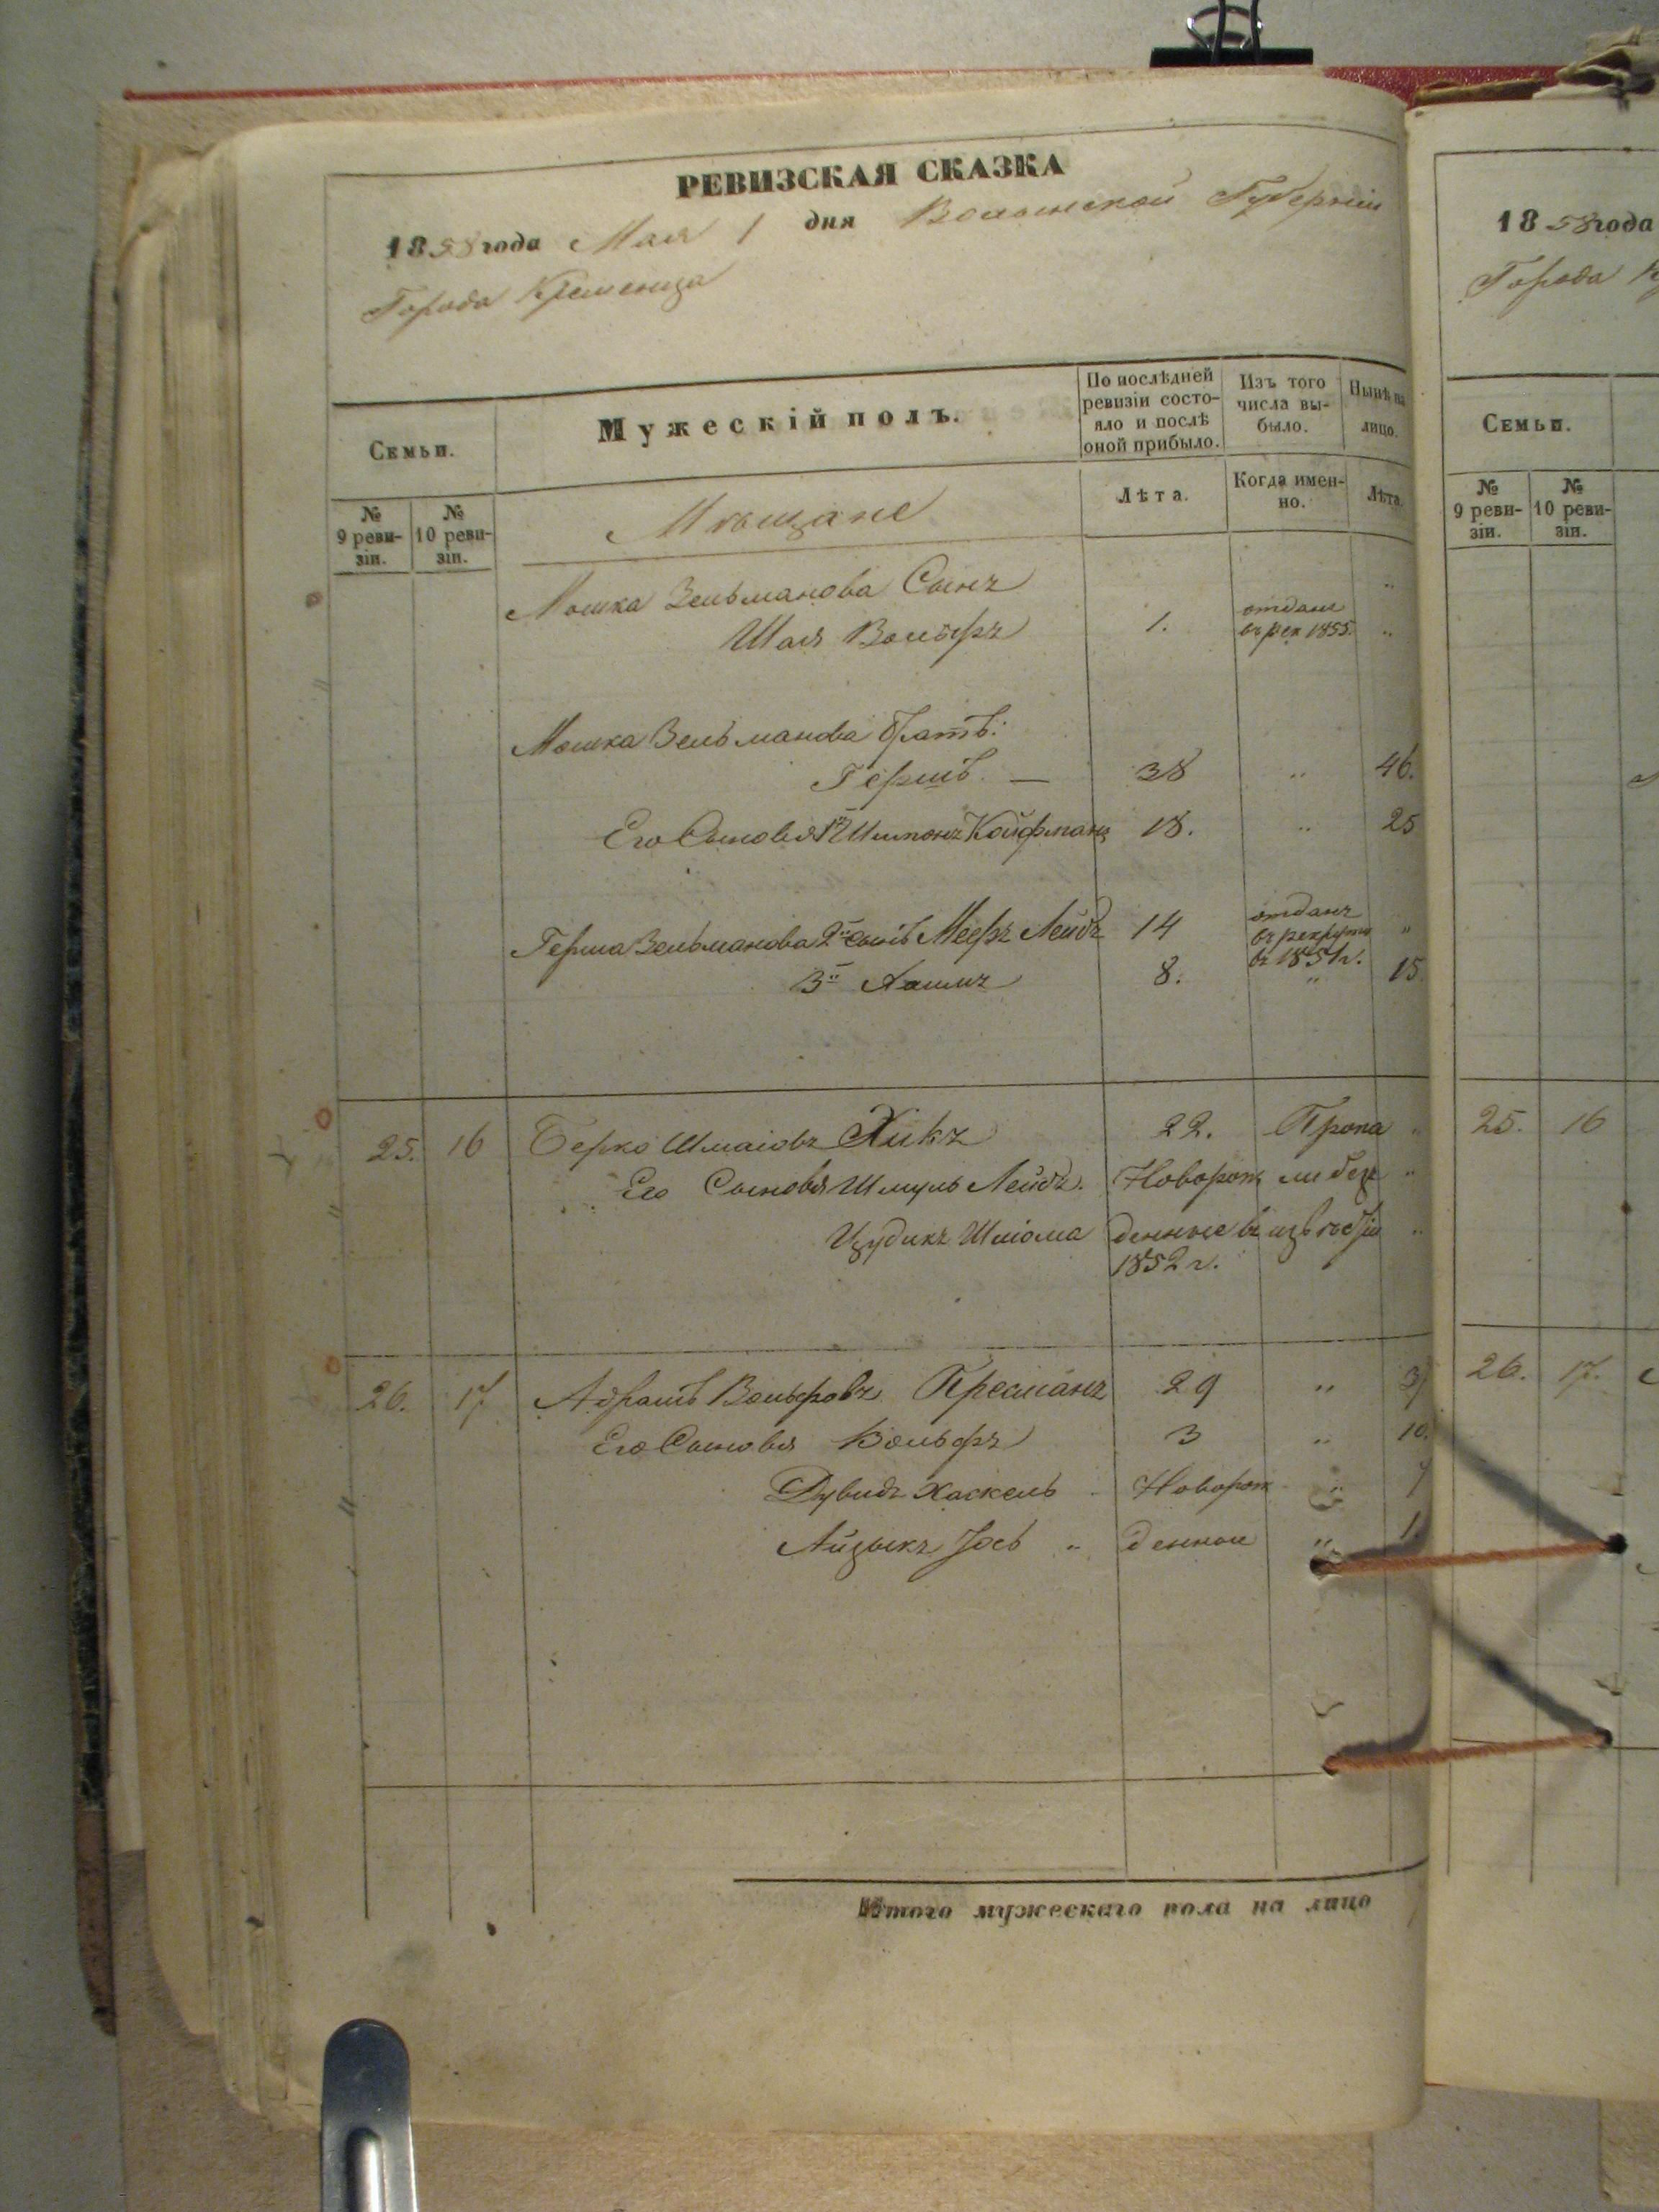 РЕВИЗСКАЯ СКАЗКА
1858 года Мая 1 дня Волынской Губерніи
Города Кременца
Семьи.
Мужескій полъ.
По послѣдней ревизіи состо-
яло и послѣ
оной прибыло.
Изъ того
числа вы-
было.
Нынѣ на
лицо.
№
9 реви-
зіи.
№
10 реви-
зіи.
Мѣщане
Лѣта.
Когда имен-
но.
Лѣта.
Мошка Зельманова Сынъ
Шая Вольфъ 1. отданъ
въ рек 1855. "
Мошка Зельманова братъ:
Гершъ. — 38 " 46.
Его Сыновья 1й Шимонъ Койфманъ 18. " 25
Герша Зельманова 2й сынъ Мееръ Лейбъ 14 отданъ
въ рекруты
въ 1851 г. "
3й Хаимъ 8. " 15
25. 16 Берко Шмаіовъ Хикъ 22. Пропа "
Его Сыновья Шмуль Лейбъ. Новорож ли без "
Цудикъ Шліома денные въ извѣстія "
1852 г.
26. 17 Абрамъ Вольфовъ Пресманъ 29 "
Его Сыновья Вольфъ 3 " 10.
Дувидъ Хаскель Новорож " 7
Айзыкъ Іось " денные " 1.
Итого мужескаго пола на лицо
1858 года
Города
Семьи.
№
9 реви-
зіи.
№
10 реви-
зіи.
25. 16
26. 17.